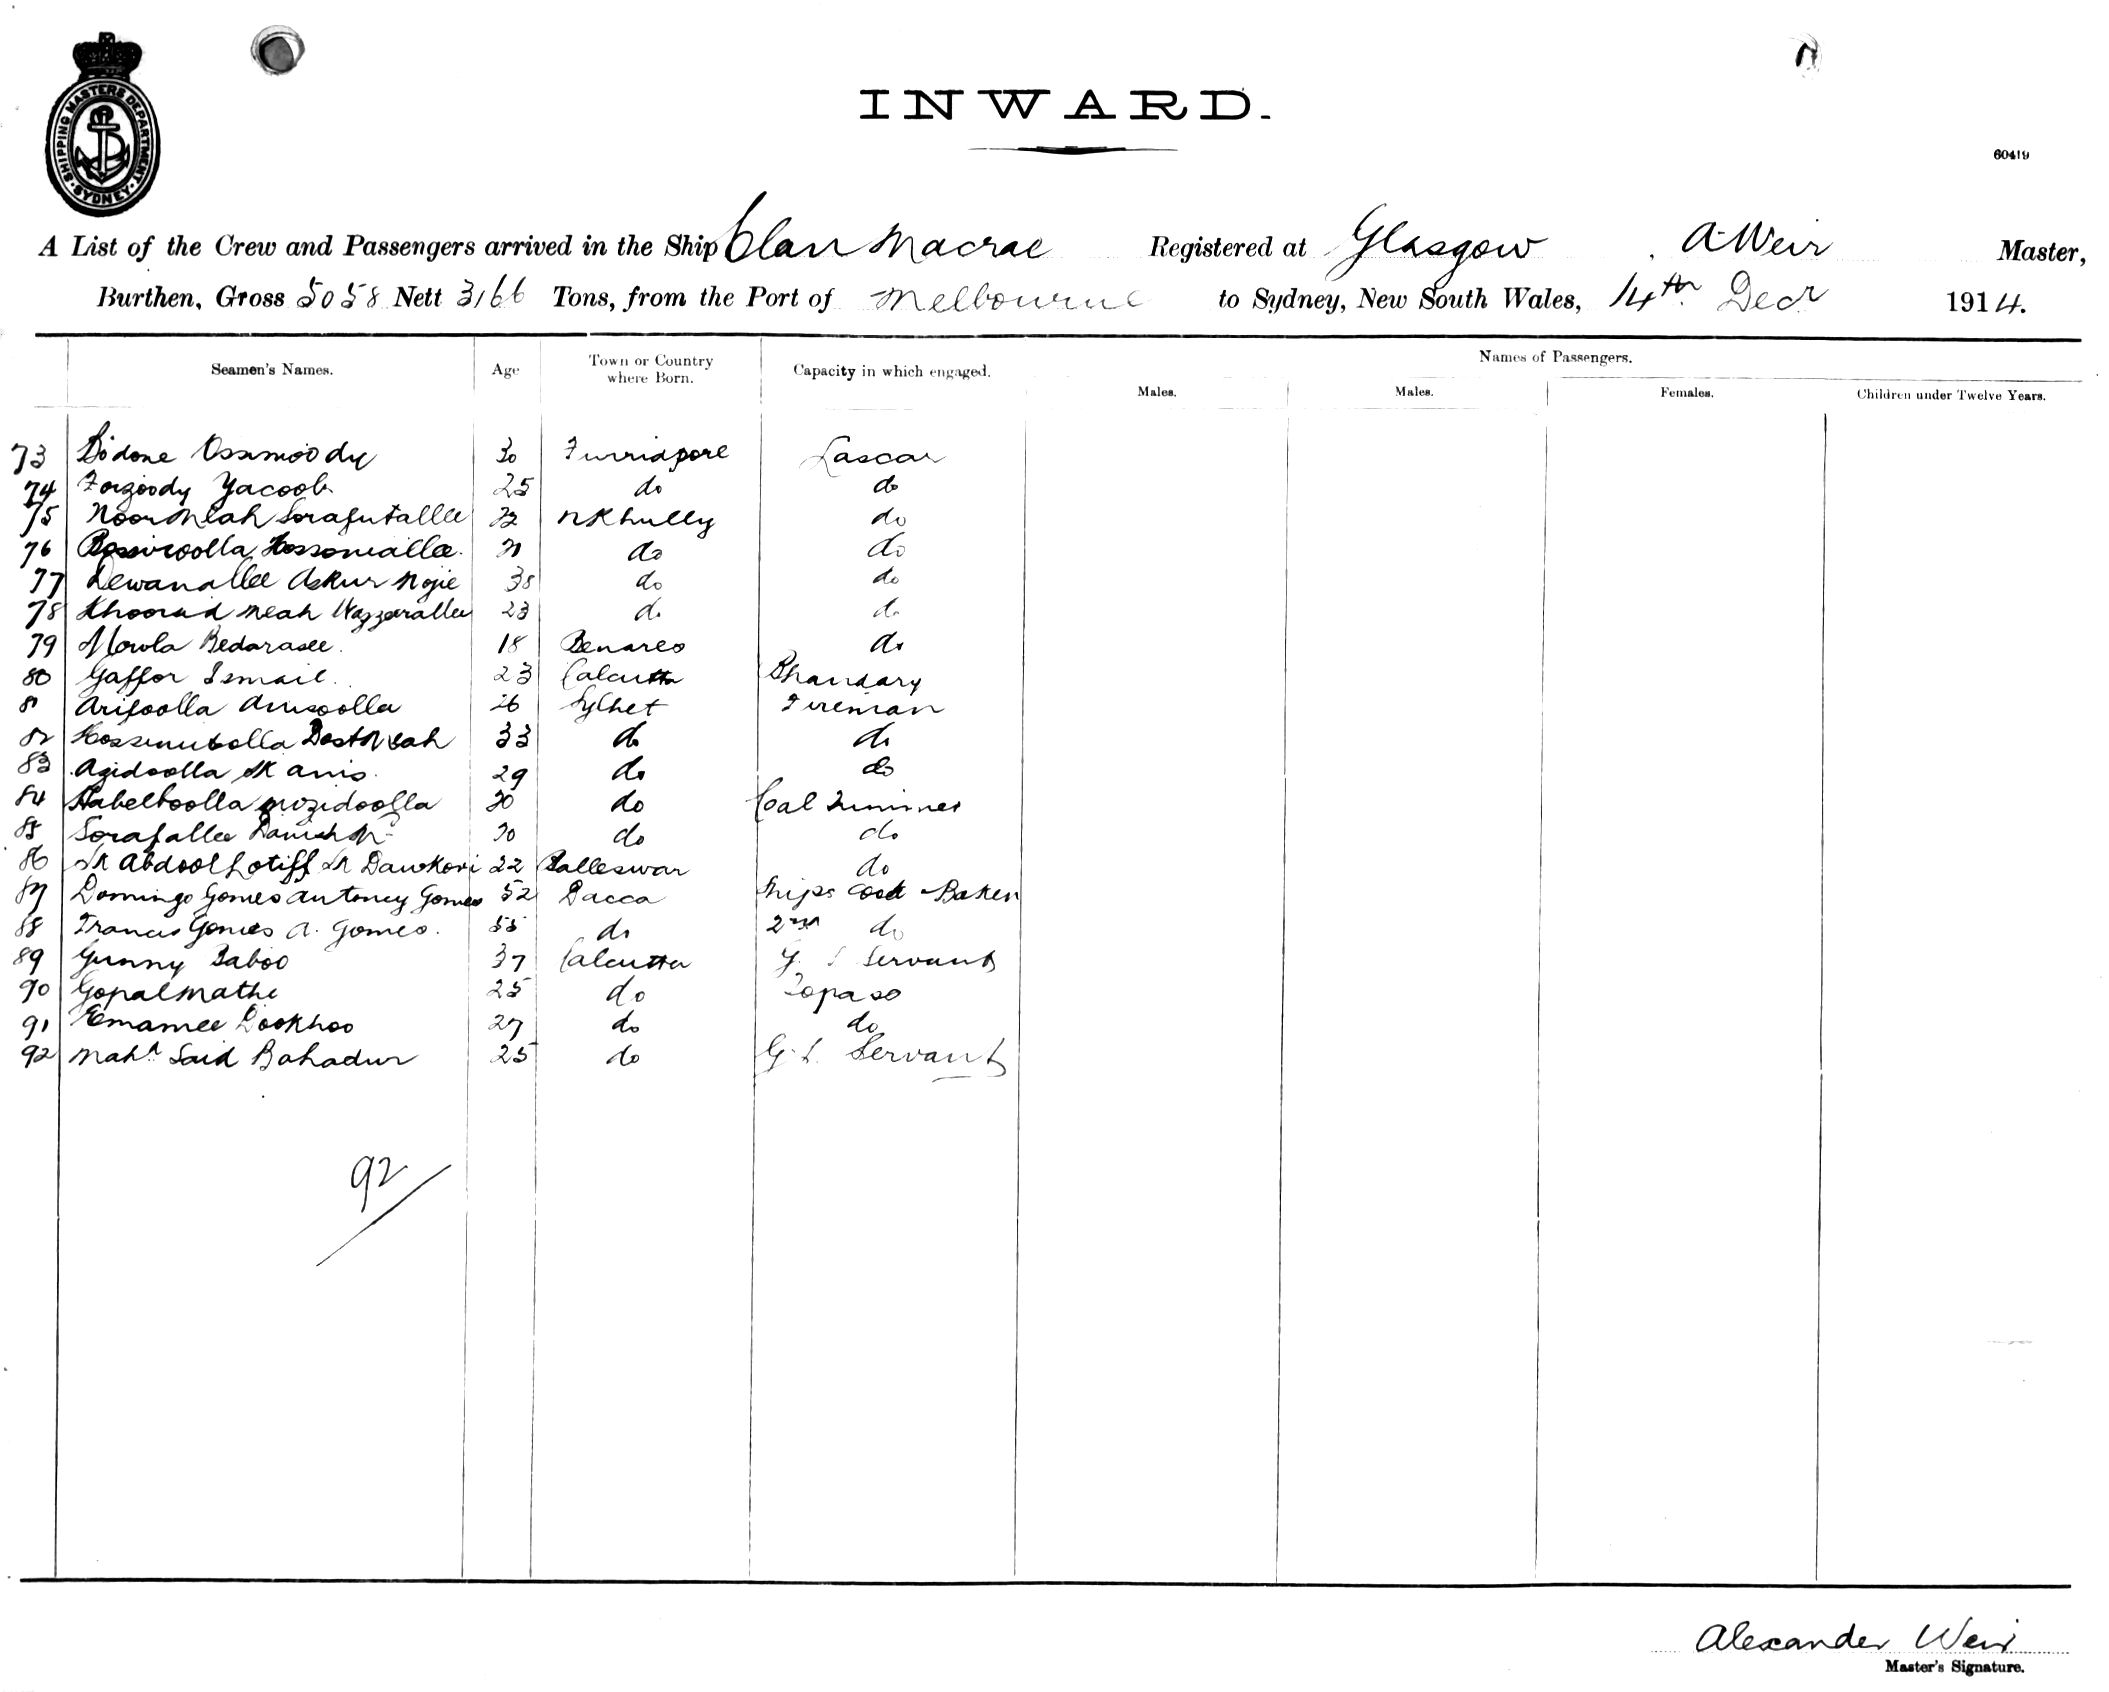 SHIPPING MASTERS DEPARTMENT SYDNEY
INWARD.
60419
A List of the Crew and Passengers arrived in the Ship Clan Macrae Registered at Glasgow, A Weir Master,
Burthen, Gross 5058 Nett 3166 Tons, from the Port of Melbourne to Sydney, New South Wales, 14th Decr 1914.
Seamen's Names. Age Town or Country where Born. Capacity in which engaged. Names of Passengers.
Males. Males. Females. Children under Twelve Years.
73 Bidone Ossimoody 30 Furridpore Lascar
74 Yacoob 25 do do
75 Noor Meah Sorafutallee NKhully do
76 Hossomallee do do
77 Dewanallee Askur 38 do do
78 Meah Wazzerallee 23 do do
79 Mowla Bedarasee. 18 Benares do
80 Gaffor Ismail. 23 Calcutta Bhandary
81 Arifoolla 26 Sylhet Fireman
82 33 do do
83 Azidoolla Sk anis. 29 do do
84 do Coal Trimmer
85 Sorafallee do do
86 Sk Abdool Lotiff Sk 22 Balleswar do
87 Domingo Gomes Antoney Gomes 52 Dacca Ships Cook & Baker
88 Francis Gomes A. Gomes. 55 do 2nd do
89 Gunny Baboo 37 Calcutta G. S Servant
90 Gopal Mathi 25 do Topass
91 Emamee Dookhoo 27 do do
92 Mahd Said Bahadur 25 do G. S. Servant
92
Alexander Weir
Master's Signature.